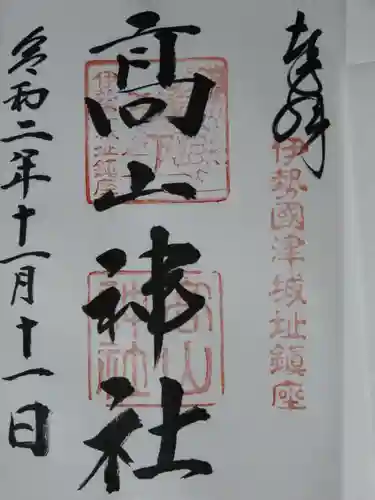 奉拝
伊勢國津城址鎮座
高山神社
高山神社
令和二年十一月十一日